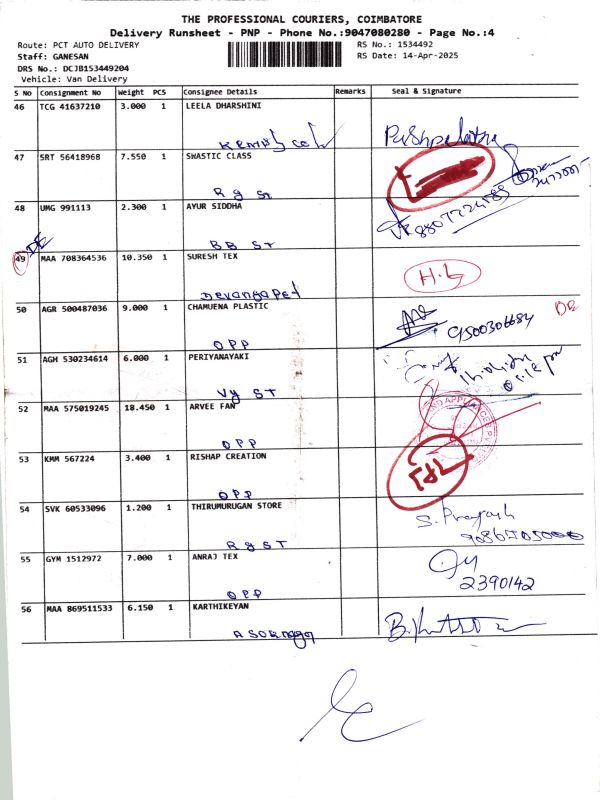 THE PROFESSIONAL COURIERS, COIMBATORE
Delivery Runsheet - PNP - Phone No.:9047080280 - Page No.:4
Route: PCT AUTO DELIVERY
RS No.: 1534492
Staff: GANESAN
RS Date: 14-Apr-2025
DRS No.: DCJB153449204
Vehicle: Van Delivery
S No Consignment No Weight PCS Consignee Details Remarks Seal & Signature
46 TCG 41637210 3.000 1 LEELA DHARSHINI
47 SRT 56418968 7.550 1 SWASTIC CLASS
Rg St
48 UMG 991113 2.300 1 AYUR SIDDHA
BB ST
49 MAA 708364536 10.350 1 SURESH TEX
H.L
Devangapet
50 AGR 500487036 9.000 1 CHAMUENA PLASTIC
9500306684
OPP
51 AGH 530234614 6.000 1 PERIYANAYAKI
Vg ST
52 MAA 575019245 18.450 1 ARVEE FAN
OPP
53 KMM 567224 3.400 1 RISHAP CREATION
OPP
54 SVK 60533096 1.200 1 THIRUMURUGAN STORE
Rg ST
55 GYM 1512972 7.000 1 ANRAJ TEX
2390142
OPP
56 MAA 869511533 6.150 1 KARTHIKEYAN